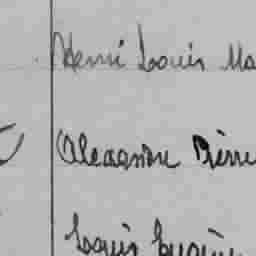 Henri Louis Ma
Alexandre Pierre
Louis Eugène